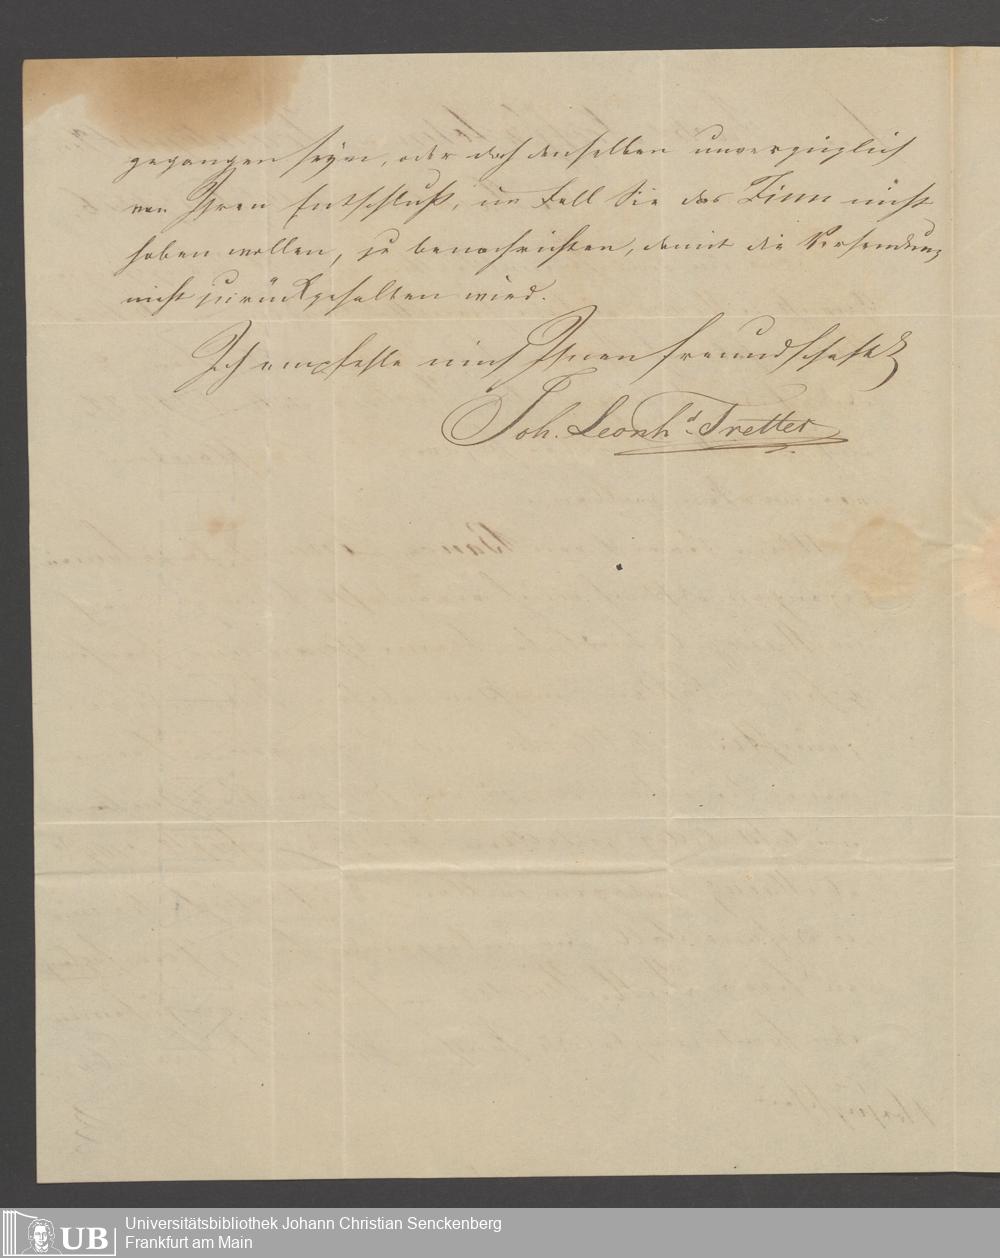 gegangen seyn, oder doch denselben unverzüglich
von Ihren Entschluß, im Fall Sie das Zinn nicht
haben wollen, zu benachrichten, damit die Versendung
nicht zurückgehalten wird.
Ich empfehle mich Ihnen freundschaftl
Joh. Leonhd. Tretter
UB
Universitätsbibliothek Johann Christian Senckenberg
Frankfurt am Main